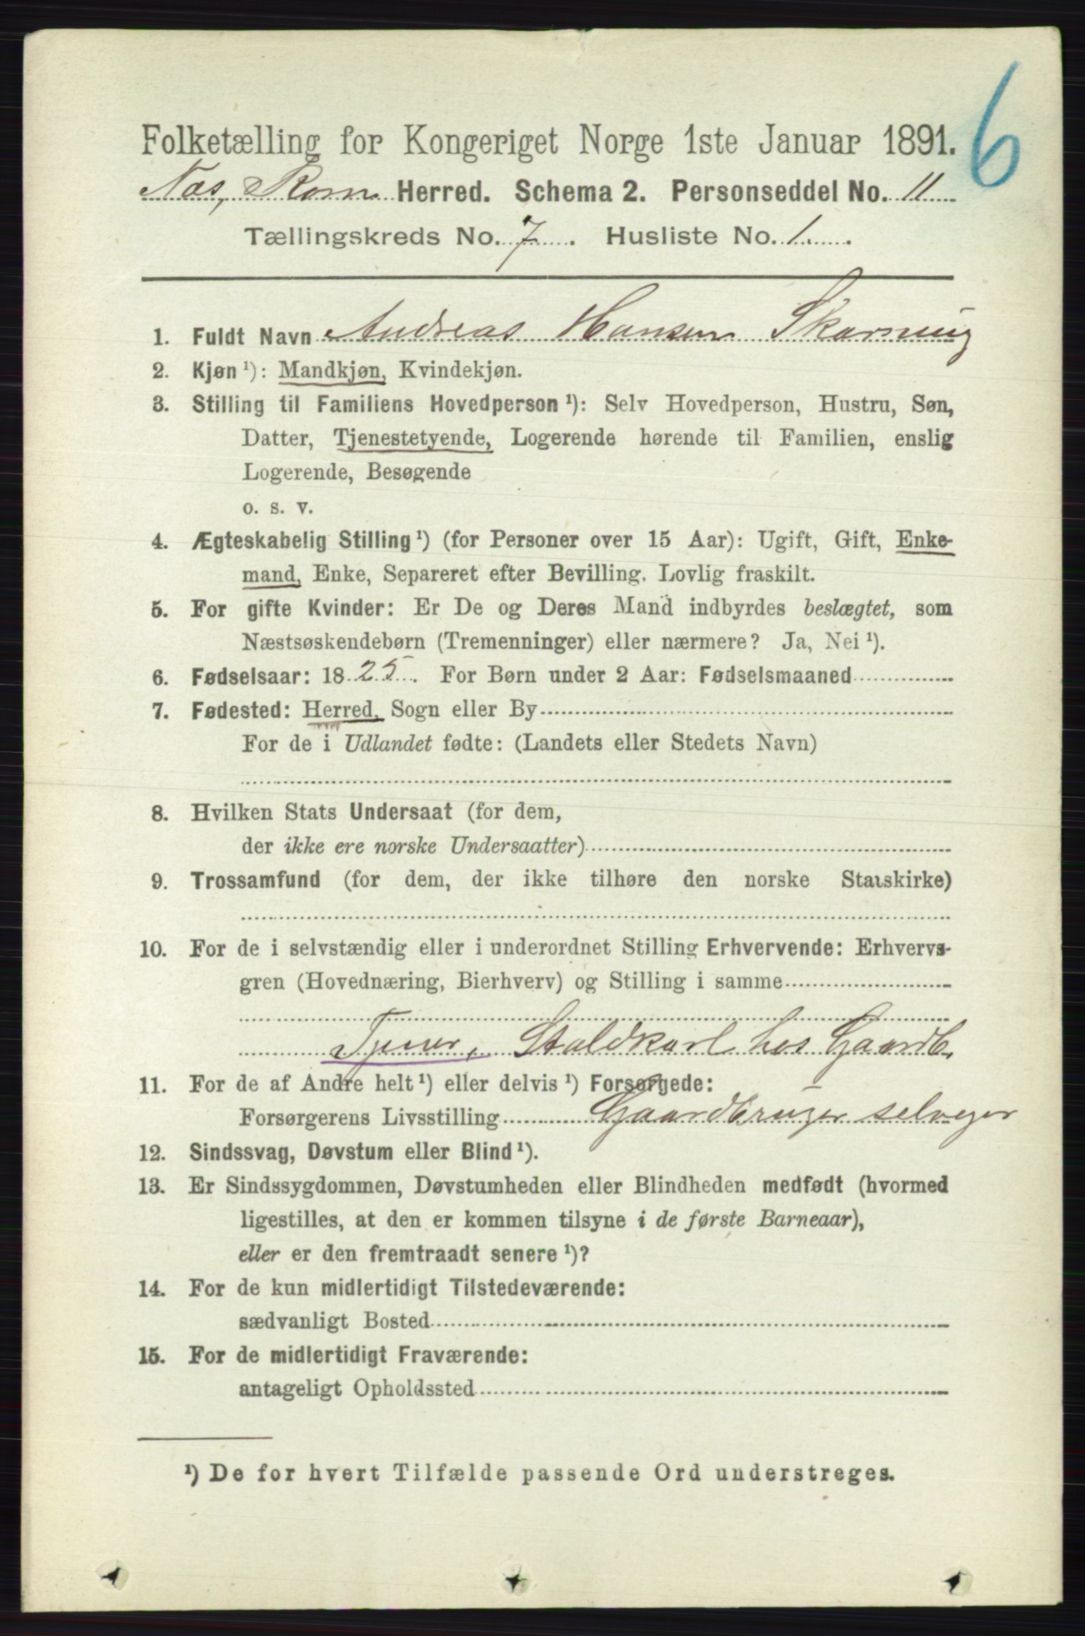 6
Folketælling for Kongeriget Norge 1ste Januar 1891.
Nes, Rom. Herred. Schema 2. Personseddel No. 11
Tællingskreds No. 7. Husliste No. 1.
1. Fuldt Navn Andreas Hansen Skarning
2. Kjøn ¹): Mandkjøn, Kvindekjøn.
3. Stilling til Familiens Hovedperson ¹): Selv Hovedperson, Hustru, Søn,
Datter, Tjenestetyende, Logerende hørende til Familien, enslig
Logerende, Besøgende
o. s. v.
4. Ægteskabelig Stilling ¹) (for Personer over 15 Aar): Ugift, Gift, Enke-
mand, Enke, Separeret efter Bevilling. Lovlig fraskilt.
5. For gifte Kvinder: Er De og Deres Mand indbyrdes beslægtet, som
Næstsøskendebørn (Tremenninger) eller nærmere? Ja, Nei ¹).
6. Fødselsaar: 1825. For Børn under 2 Aar: Fødselsmaaned
7. Fødested: Herred, Sogn eller By
For de i Udlandet fødte: (Landets eller Stedets Navn)
8. Hvilken Stats Undersaat (for dem,
der ikke ere norske Undersaatter)
9. Trossamfund (for dem, der ikke tilhøre den norske Statskirke)
10. For de i selvstændig eller i underordnet Stilling Erhvervende: Erhvervs-
gren (Hovednæring, Bierhverv) og Stilling i samme
Tjener, Staldkarl hos Gaardb.
11. For de af Andre helt ¹) eller delvis ¹) Forsørgede:
Forsørgerens Livsstilling Gaardbruger selveger
12. Sindssvag, Døvstum eller Blind ¹).
13. Er Sindssygdommen, Døvstumheden eller Blindheden medfødt (hvormed
ligestilles, at den er kommen tilsyne i de første Barneaar),
eller er den fremtraadt senere ¹)?
14. For de kun midlertidigt Tilstedeværende:
sædvanligt Bosted
15. For de midlertidigt Fraværende:
antageligt Opholdssted
¹) De for hvert Tilfælde passende Ord understreges.